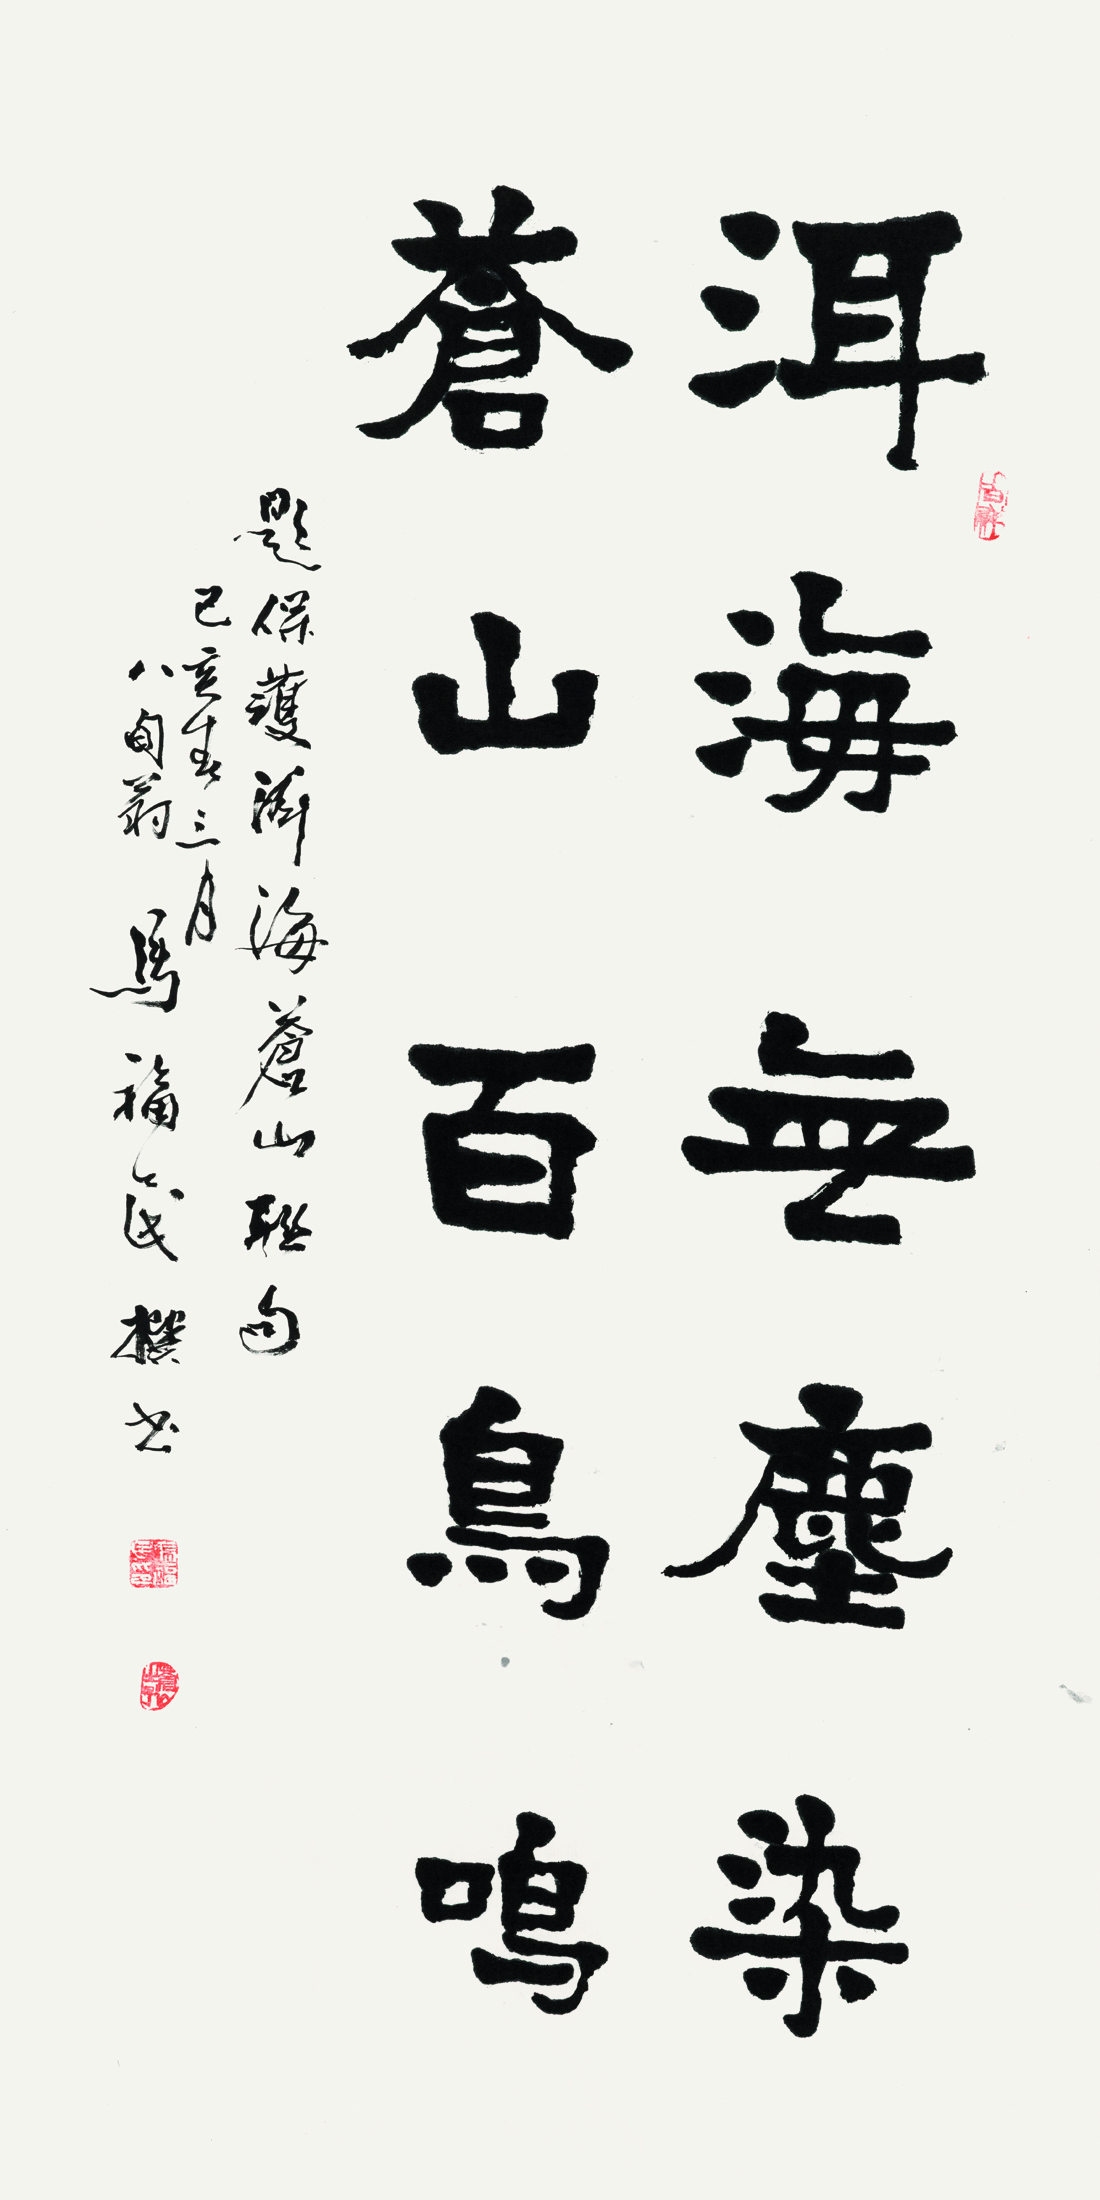 洱海無塵染
蒼山百鳥鳴
題保護洱海蒼山聯句
己亥春三月
八旬翁 馬福民撰书